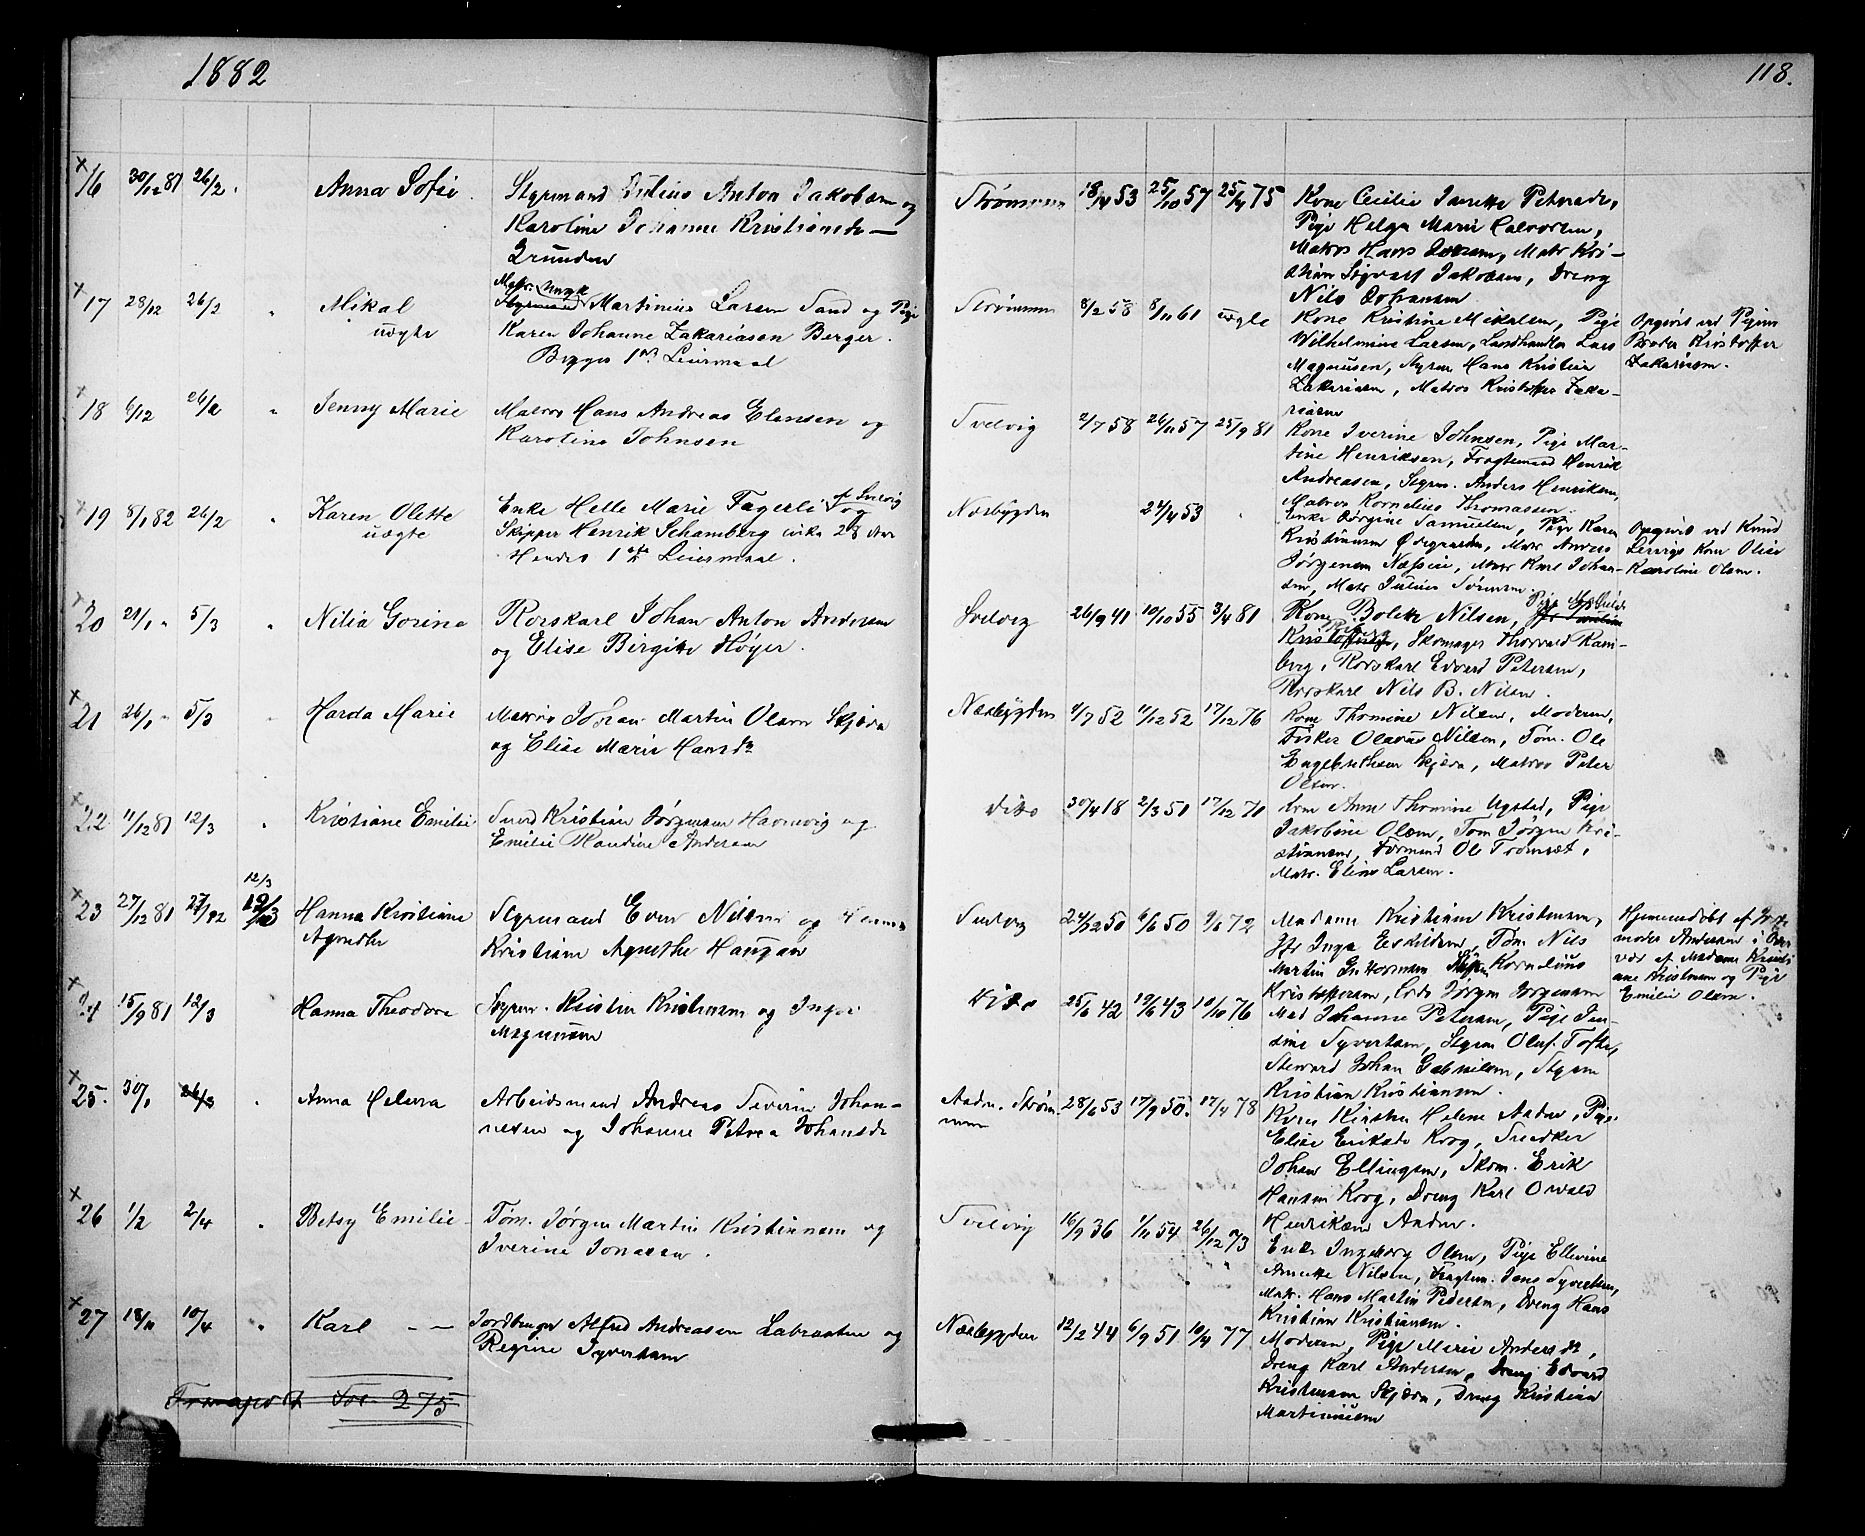 1882
118.
16 30/12 81 26/2 Anna Sofie Styrmand Julius Anton Jakobsen og
Karoline Johanne Kristiansdr —
Grunden
Strømmen 18/4 53 25/10 57 25/4 75
Kone Cecilie Petersdr,
Pige Helga Marie Halvorsen,
Matros Hans Matr Kri-
stian Sigvart Jakobsen, Dreng
Nils Johansen
17 28/12 26/2 " Mikal
uægte
Matr. Ungk
Styrmand Martinius Larsen Sand og Pige
Karen Johanne Zakariasen Berger.
Begges 1ste Leiermaal
Strømmen 8/2 58 8/11 61 uægte
Kone Kristine Mikalsen, Pige
Wilhelmine Larsen, Landhandler Lars
Magnusen, Styrm Hans Kristian
Zakariasen, Matros Kristoffer Zaka-
riasen
Opgivet ved Pigens
Broder Kristoffer
Zakariasen.
18 6/12 26/2 " Jenny Marie Matros Hans Andreas Elensen og
Karoline Johnsen
Svelvig 2/7 58 26/11 57 25/9 81
Kone Iverine Johnsen, Pige Mar-
tine Henriksen, Fragtemand Henrik
Andreasen, Styrm. Anders Henriksen,
Matros Kornelius Thomassen.
19 8/1 82 26/2 " Karen Olette
uægte
Enke Helle Marie Fagerli af Svelvig og
Skipper Henrik Schamberg cirka 28 Aar
Hendes 1ste Leiermaal.
Næsbygden 24/4 53
Enke Jørgine Samuelsen, Pige Karen
Kristiansen Ødegaarden, Matr Anders
Jørgensen Næssene, Matr Karl Johan-
sen, Matr Julius Sørensen
Opgivet ved Knud
Kone Olise
Karoline Olsen.
20 21/1 " 5/3 " Nilia Gorine Rorskarl Johan Anton Andersen
og Elise Birgitte Høyer.
Svelvig 26/9 41 10/10 55 3/4 81
Kone Bolette Nilsen, Pige
Skomager Thorvald Ram-
berg, Rorskarl Edvard Petersen,
Rorskarl Nils B. Nilsen.
21 26/1 " 5/3 Harda Marie Matros Johan Martin Olsen Skjæra
og Elise Marie Hansdr
Næsbygden 1/7 52 11/12 52 17/12 76
Kone Thomine Nilsen, Moderen,
Fisker Olavus Nilsen, Tøm. Ole
Engebrethsen Skjæra, Matros Peter
Olsen.
22 11/12 81 12/3 " Kristiane Emilie Smed Kristian Jørgensen Havnevig og
Emilie Randine Andersen
Dito 30/4 18 2/3 50 17/12 70
Kone Anne Thomine Ugstad, Pige
Jakobine Olsen, Tøm Jørgen Kri-
stiansen, Formand Ole Tromsæt,
Matr. Elias Larsen.
12/3
23 27/12 81 27/12 12/3 Hanna Kristiane
Agnethe
Styrmand Even Nilsen og Hanna
Kristiane Agnethe Haugan
Svelvig 24/12 50 6/6 50 9/6 72
Madame Kristiane Kristensen,
Jfr Inga Eskildsen, Tøm Nils
Martin Guttormsen Kornelius
Kristoffersen, Jørgen Jørgensen
Hjemmedøbt af Jorde-
moder Andersen i Over-
vær af Madame Kristi-
ane Kristensen og Pige
Emilie Olsen.
24 15/9 81 12/3 Hanna Theodora Styrm. Kristian Kristensen og Inger
Magnussen
Dito 25/6 42 19/6 43 10/10 76
Mad Johanne Petersen, Pige Jen-
sine Syvertsen, Styrm Oluf Tofte,
Steward Johan Gabrielsen, Styrm
Kristian Kristiansen.
25. 30/1 26/3 " Anna Arbeidsmand Andreas Severin Johan-
nesen og Johanne Petrea Johansdr
Aadn. Strøm-
men
28/6 53 17/9 50. 17/4 78
Kone Kirsten Helene Aadne, Pige
Elise Eriksdr Krog, Snedker
Johan Ellingsen, Skom. Erik
Hansen Krog, Dreng Karl Osvald
Henriksen Aadne.
26 1/2 2/4 " Betsy Emilie Tøm. Jørgen Martin Kristiansen og
Iverine Jonassen.
Svelvig 16/9 36 1/11 54 26/12 73
Enke Ingeborg Olsen, Pige Ellevine
Annette Nilsen, Fragtem. Jens Syvertsen,
Matr. Hans Martin Pedersen, Dreng Hans
Kristian Kristiansen.
27 18/11 10/4 " Karl — — Jordbruger Alfred Andreasen Labraaten og
Regine Syvertsen
Næsbygden 12/2 44 6/9 51 10/4 77
Moderen, Pige Marie Andersdr,
Dreng Karl Andersen, Dreng Edvard
Kristensen Skjæra, Dreng Kristian
Martinusen
Transport 275